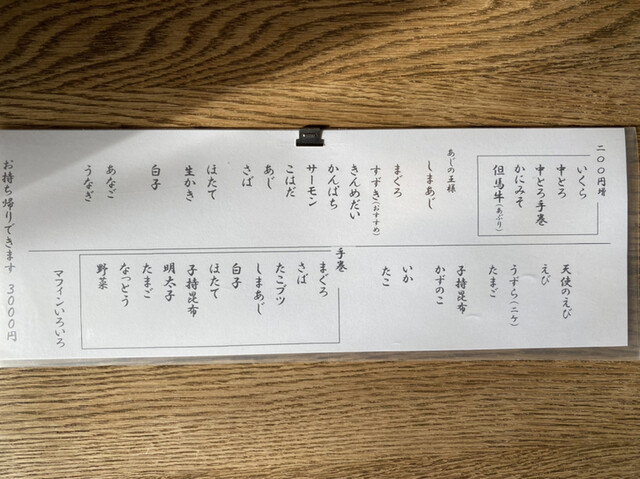 二〇〇円増
いくら
中とろ
中とろ手巻
かにみそ
但馬牛(あぶり)
あじの王様
しまあじ
まぐろ
すずき(おすすめ)
きんめだい
かんぱち
サーモン
こはだ
あじ
さば
ほたて
生かき
白子
あなご
うなぎ
天使のえび
えび
うずら(二ケ)
たまご
子持昆布
かずのこ
いか
たこ
手巻
まぐろ
さば
たこブツ
しまあじ
白子
ほたて
子持昆布
明太子
たまご
なっとう
野菜
マフィンいろいろ
お持ち帰りできます 3000円